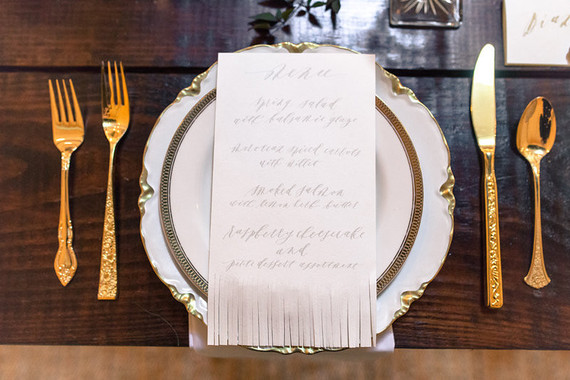 menu
spring salad
with balsamic glaze
moroccan spiced carrots
with
smoked salmon
with lemon herb butter
Raspberry cheesecake
and
petite dessert assortment